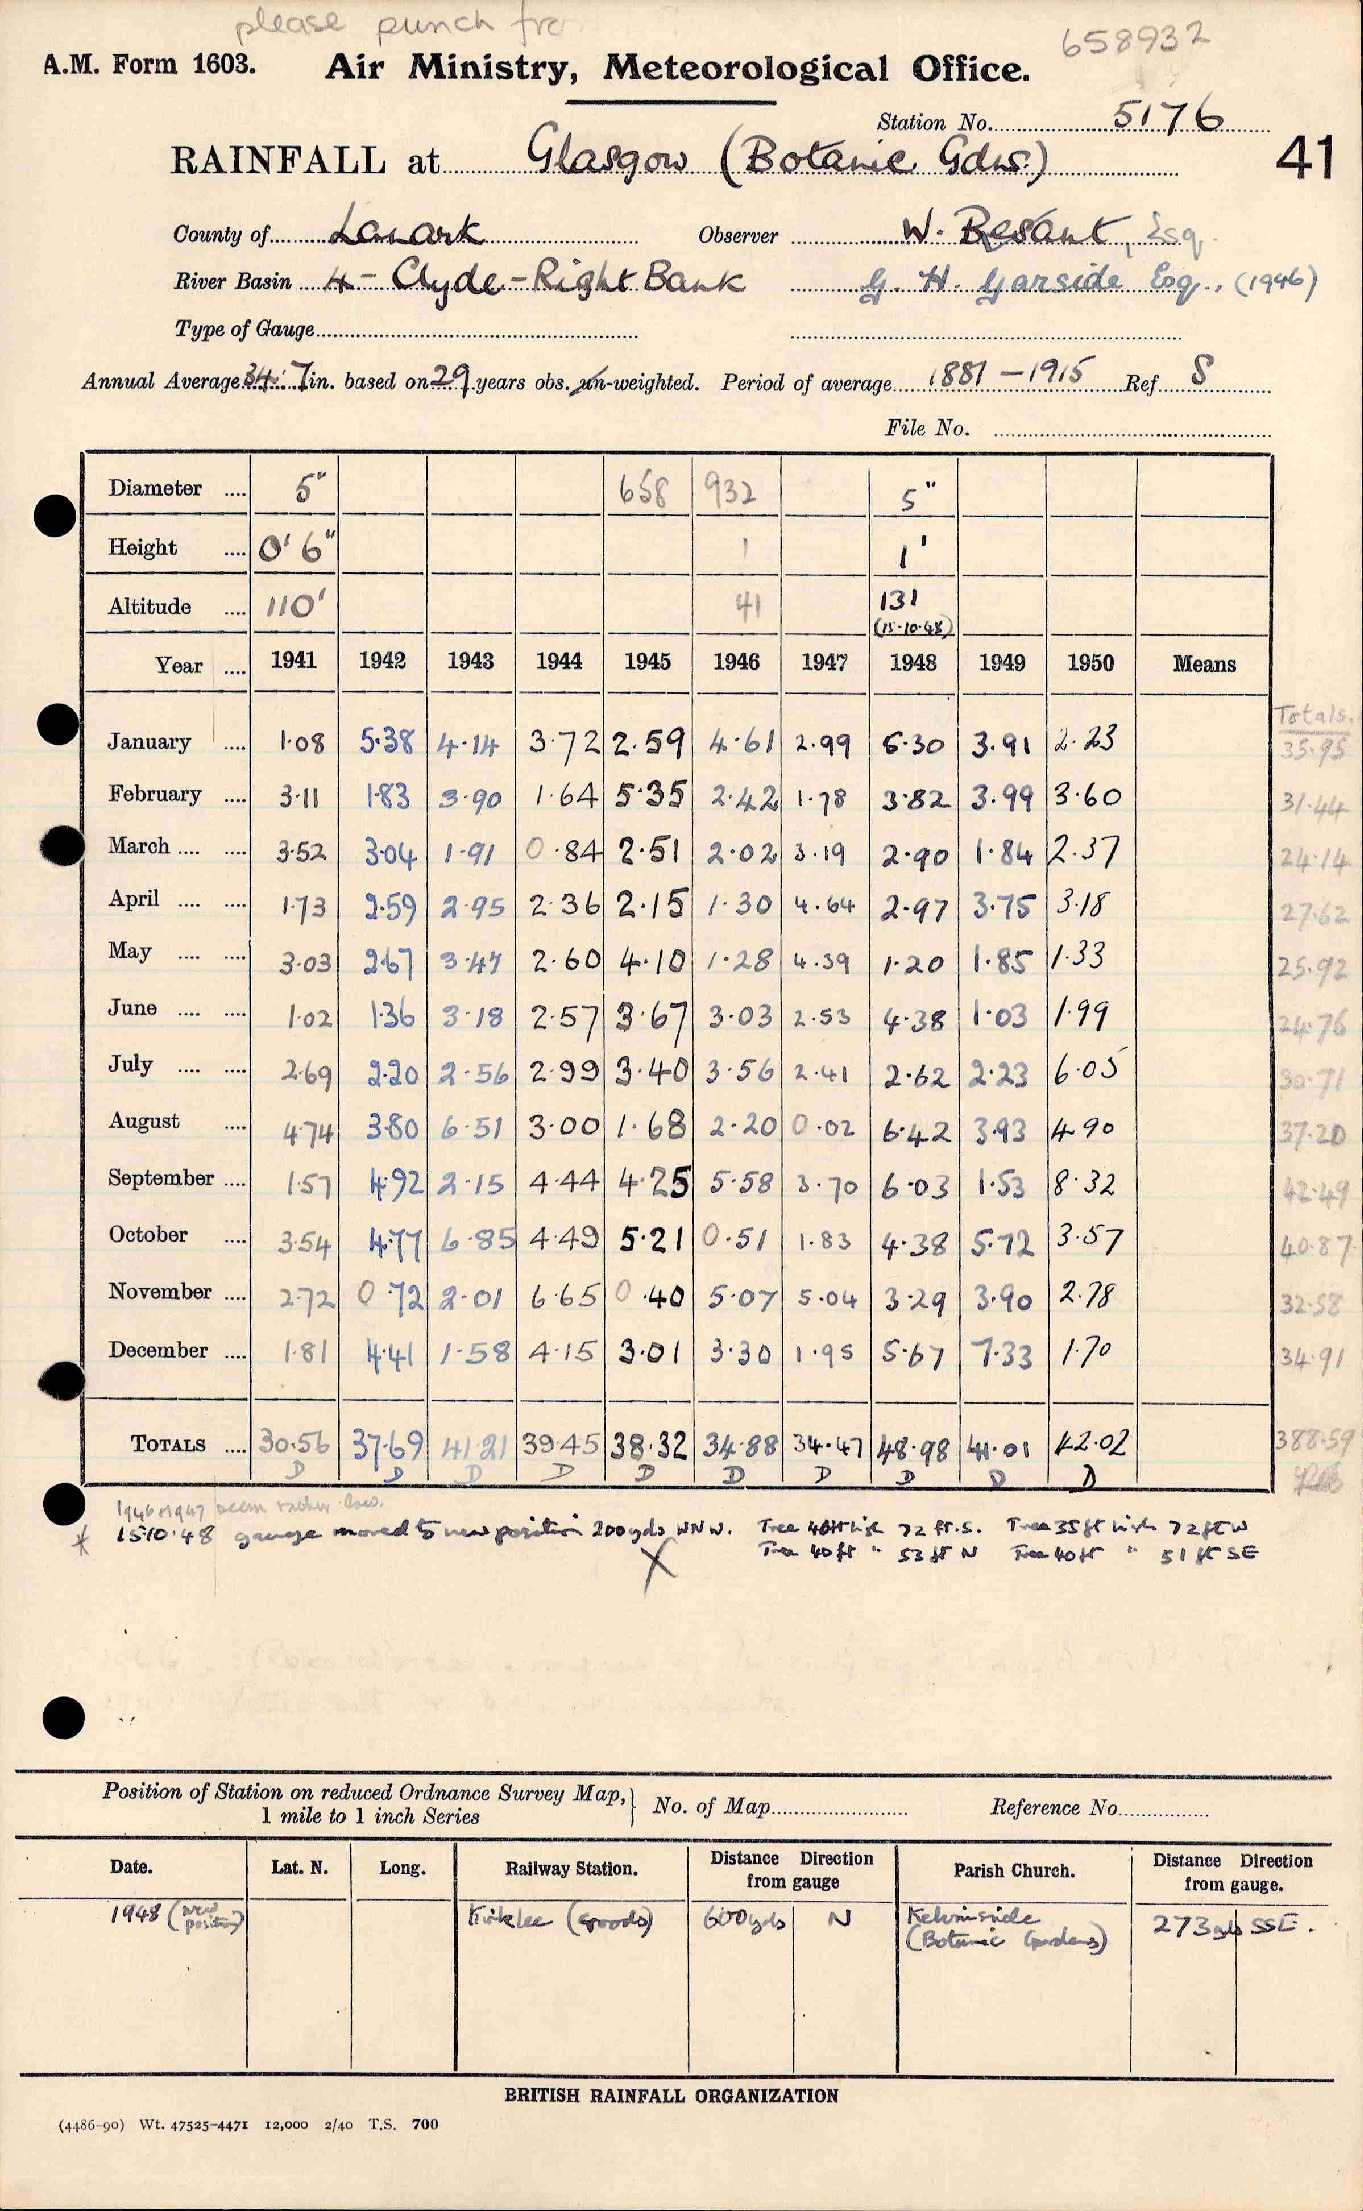 please punch fro
658932
A.M. Form 1603. Air Ministry, Meteorological Office.
Station No. 5176
RAINFALL at Glasgow (Botanic Gdns.) 41
County of Lanark Observer W. Besant, Esq.
River Basin 4 - Clyde - Right Bank G. H. Garside Esq., (1946)
Type of Gauge
Annual Average 34.7 in. based on 29 years obs. un-weighted. Period of average 1881 - 1915 Ref S
File No.
Diameter .... 5" 658 932 5"
Height .... 0' 6" 1 1'
Altitude .... 110' 41 131
(15-10-48)
Year .... 1941 1942 1943 1944 1945 1946 1947 1948 1949 1950 Means
Totals.
January .... 1.08 5.38 4.14 3.72 2.59 4.61 2.99 5.30 3.91 2.23 35.95
February .... 3.11 1.83 3.90 1.64 5.35 2.42 1.78 3.82 3.99 3.60 31.44
March .... .... 3.52 3.04 1.91 0.84 2.51 2.02 3.19 2.90 1.84 2.37 24.14
April .... .... 1.73 2.59 2.95 2.36 2.15 1.30 4.64 2.97 3.75 3.18 27.62
May .... .... 3.03 2.67 3.47 2.60 4.10 1.28 4.39 1.20 1.85 1.33 25.92
June .... .... 1.02 1.36 3.18 2.57 3.67 3.03 2.53 4.38 1.03 1.99 24.76
July .... .... 2.69 2.20 2.56 2.99 3.40 3.56 2.41 2.62 2.23 6.05 30.71
August .... 4.74 3.80 6.51 3.00 1.68 2.20 0.02 6.42 3.93 4.90 37.20
September .... 1.57 4.92 2.15 4.44 4.25 5.58 3.70 6.03 1.53 8.32 42.49
October .... 3.54 4.77 6.85 4.49 5.21 0.51 1.83 4.38 5.72 3.57 40.87
November .... 2.72 0.72 2.01 6.65 0.40 5.07 5.04 3.29 3.90 2.78 32.58
December .... 1.81 4.41 1.58 4.15 3.01 3.30 1.95 5.67 7.33 1.70 34.91
TOTALS .... 30.56 37.69 41.21 39.45 38.32 34.88 34.47 48.98 41.01 42.02 388.59
D D D D D D D D D D
1946 & 1947 seem rather low.
* 15.10.48 gauge moved to new position 200 yds WNW. Tree 40ft high 72 ft. S. Tree 35 ft high 72 ft W
Tree 40 ft " 53 ft N Tree 40 ft " 51 ft SE
X
Position of Station on reduced Ordnance Survey Map, 1 mile to 1 inch Series } No. of Map Reference No.
Date. Lat. N. Long. Railway Station. Distance Direction from gauge Parish Church. Distance Direction from gauge.
1948 (new position) Kirklee (goods) 600 yds N Kelvinside (Botanic Gardens) 273 yds SSE.
BRITISH RAINFALL ORGANIZATION
(4486-90) Wt. 47525-4471 12,000 2/40 T.S. 700